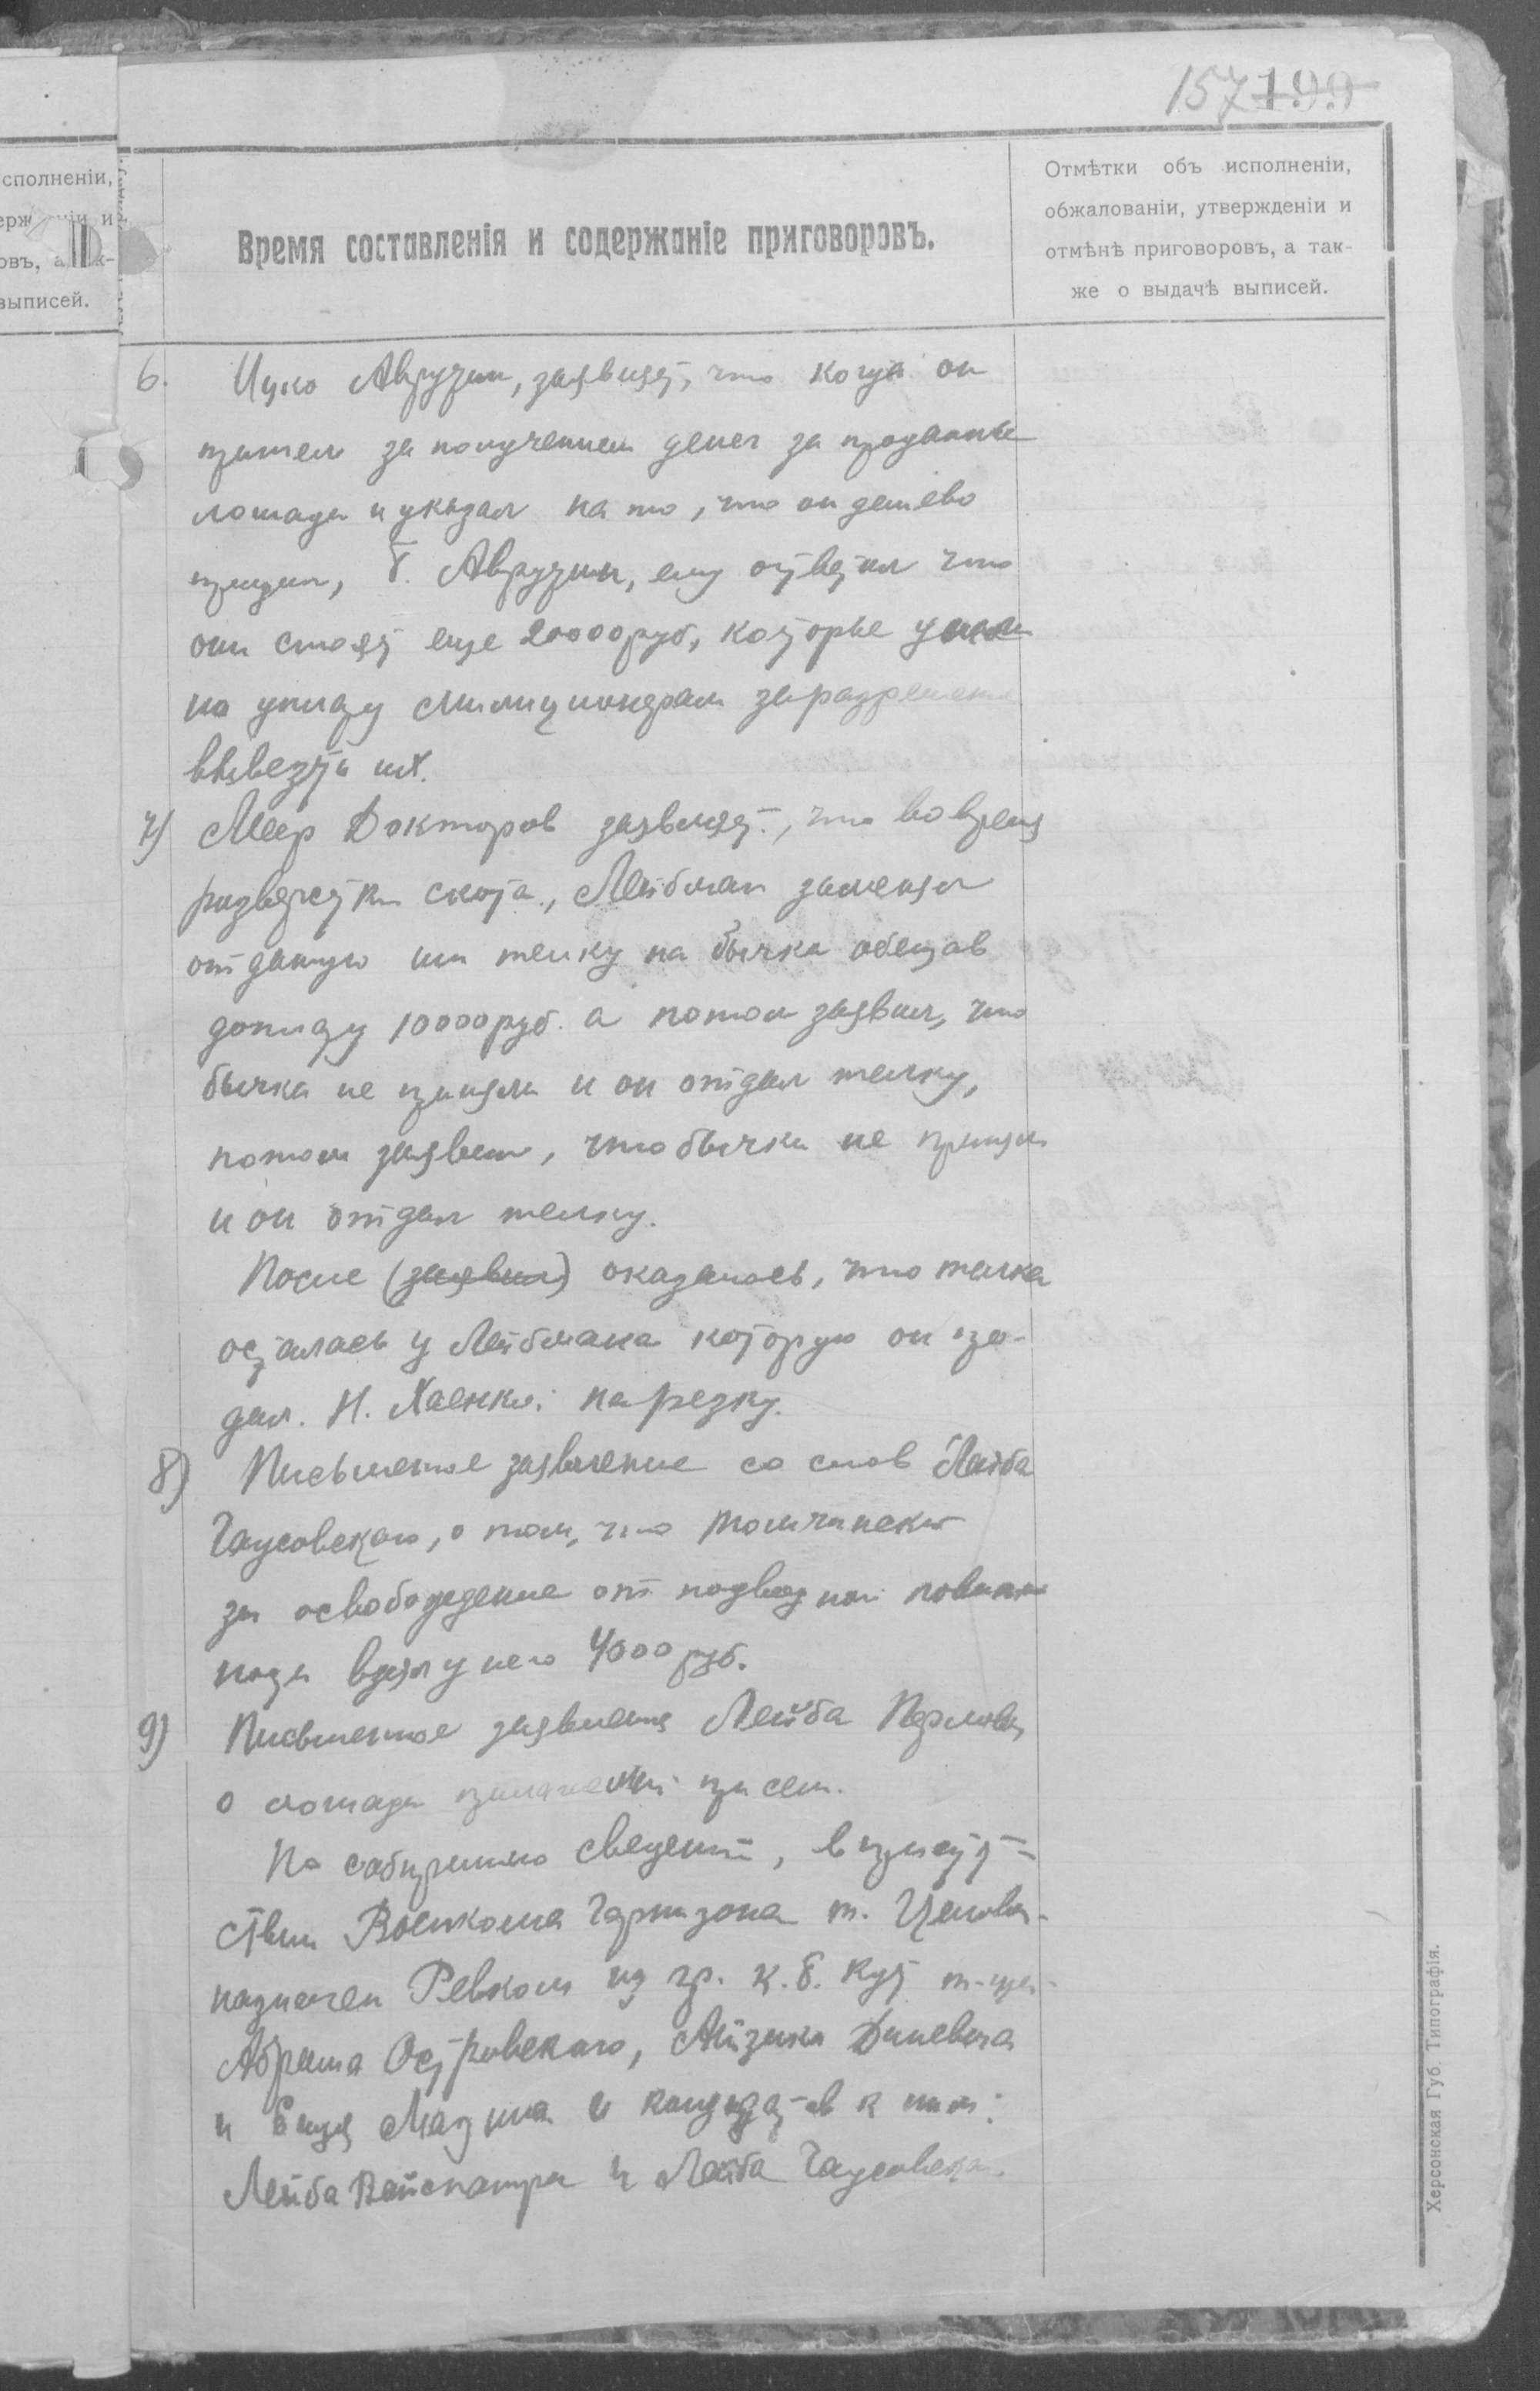 157 199
сполненіи,
и
овъ,
выписей.
Время составленія и содержаніе приговоровъ.
Отмѣтки объ исполненіи,
обжалованіи, утвержденіи и
отмѣнѣ приговоровъ, а так-
же о выдачѣ выписей.
6. Ицко Аврузин, заявляет, что когда он
пришел за получением денег за проданные
лошади и указал на то, что он дешево
продал, Б. Аврузин, ему ответил что
они стоят еще 20000 руб, которые ушли
на уплату милиционерам за разрешение
вывезти их.
7) Меер Докторов заявляет, что во время
разверстки скота, Лейбман заменял
отданную им телку на бычка обещав
доплату 10000 руб. а потом заявил, что
бычка не приняли и он отдал телку,
потом заявил, что бычка не приняли
и он отдал телку.
После (заявил) оказалось, что телка
осталась у Лейбмана которую он про-
дал. Н. на резку.
8) Письменное заявление со слов Лейба
Чаусовского, о том, что
за освобождение от подводной повин
ности взял у него 4000 руб.
9) Письменное заявление Лейба
о лошади при сем.
По собиранию сведений, в присут-
ствии Военкома Гарнизона т.
назначен Ревком из гр. к. б. Кут
Абрама Островского, Айзика Диневича
и и кандидатов к ним:
Лейба и Лейба Чаусовского.
Херсонская Губ. Типографія.